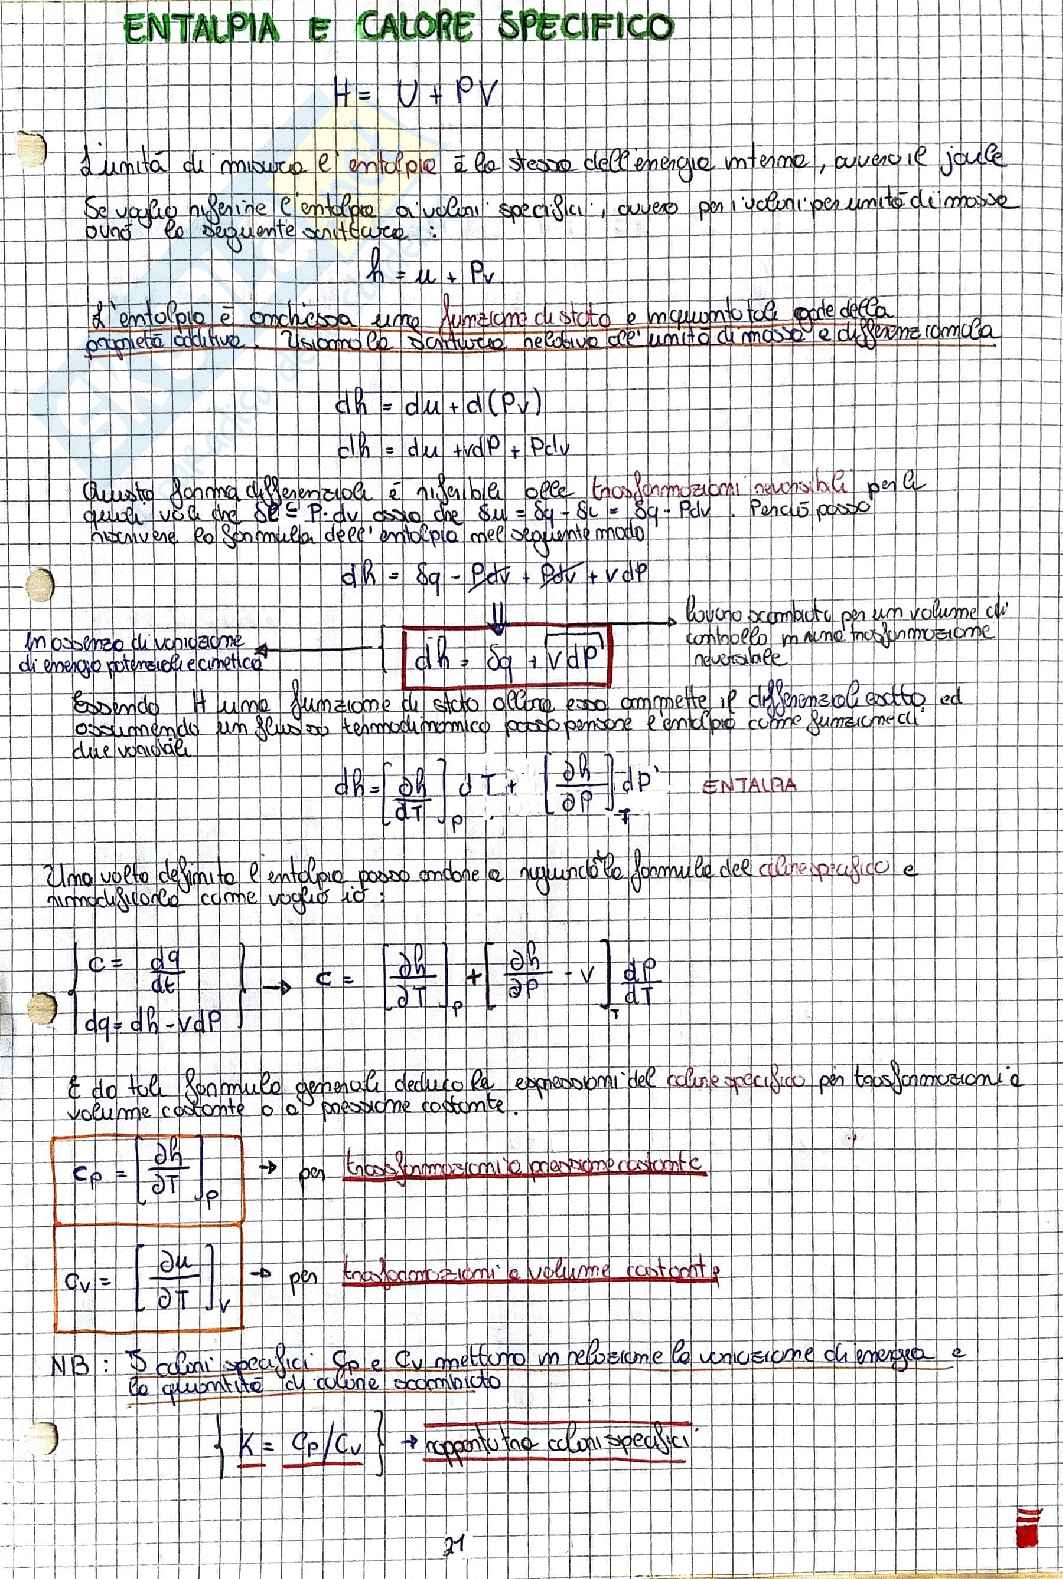 ENTALPIA E CALORE SPECIFICO
H = U + PV
L'unità di misura l'entalpia è la stessa dell'energia interna, ovvero il joule
Se voglio riferire l'entalpia a volumi specifici, ovvero per i volumi per unità di massa
avrò la seguente scrittura :
h = u + Pv
L'entalpia è anch'essa una funzione di stato e in quanto tale gode della
proprietà additiva. Usiamo la scrittura relativa all'unità di massa e differenziamola
dh = du + d(Pv)
dh = du + vdP + Pdv
Questa forma differenziale è riferibile alle trasformazioni reversibili per le
quali vale che δl = P·dv ossia che δu = δq - δl = δq - Pdv . Perciò posso
riscrivere la formula dell'entalpia nel seguente modo
dh = δq - Pdv + Pdv + vdP
⇓
lavoro scambiato per un volume di
controllo in una trasformazione
reversibile
in assenza di variazione
di energia potenziale e cinetica
dh = δq + vdP
Essendo H una funzione di stato allora essa ammette il differenziale esatto, ed
assumendo un flusso termodinamico posso pensare l'entalpia come funzione di
due variabili
dh = [∂h/dT]P dT + [∂h/∂P]T dP ENTALPIA
Una volta definita l'entalpia posso andare a la formula del calore specifico e
rimodificarla come voglio io :
{ c = dq/dt
dq = dh - vdP } → c = [∂h/∂T]P + [∂h/∂P - v]T dP/dT
E da tale formula generale deduco le espressioni del calore specifico per trasformazioni a
volume costante o a pressione costante.
cP = [∂h/∂T]P → per trasformazioni a pressione costante
cV = [∂u/∂T]V → per trasformazioni a volume costante
NB : I calori specifici CP e CV mettono in relazione la variazione di energia e
la quantità di calore scambiato
{ K = CP/CV } → rapporto tra calori specifici
21